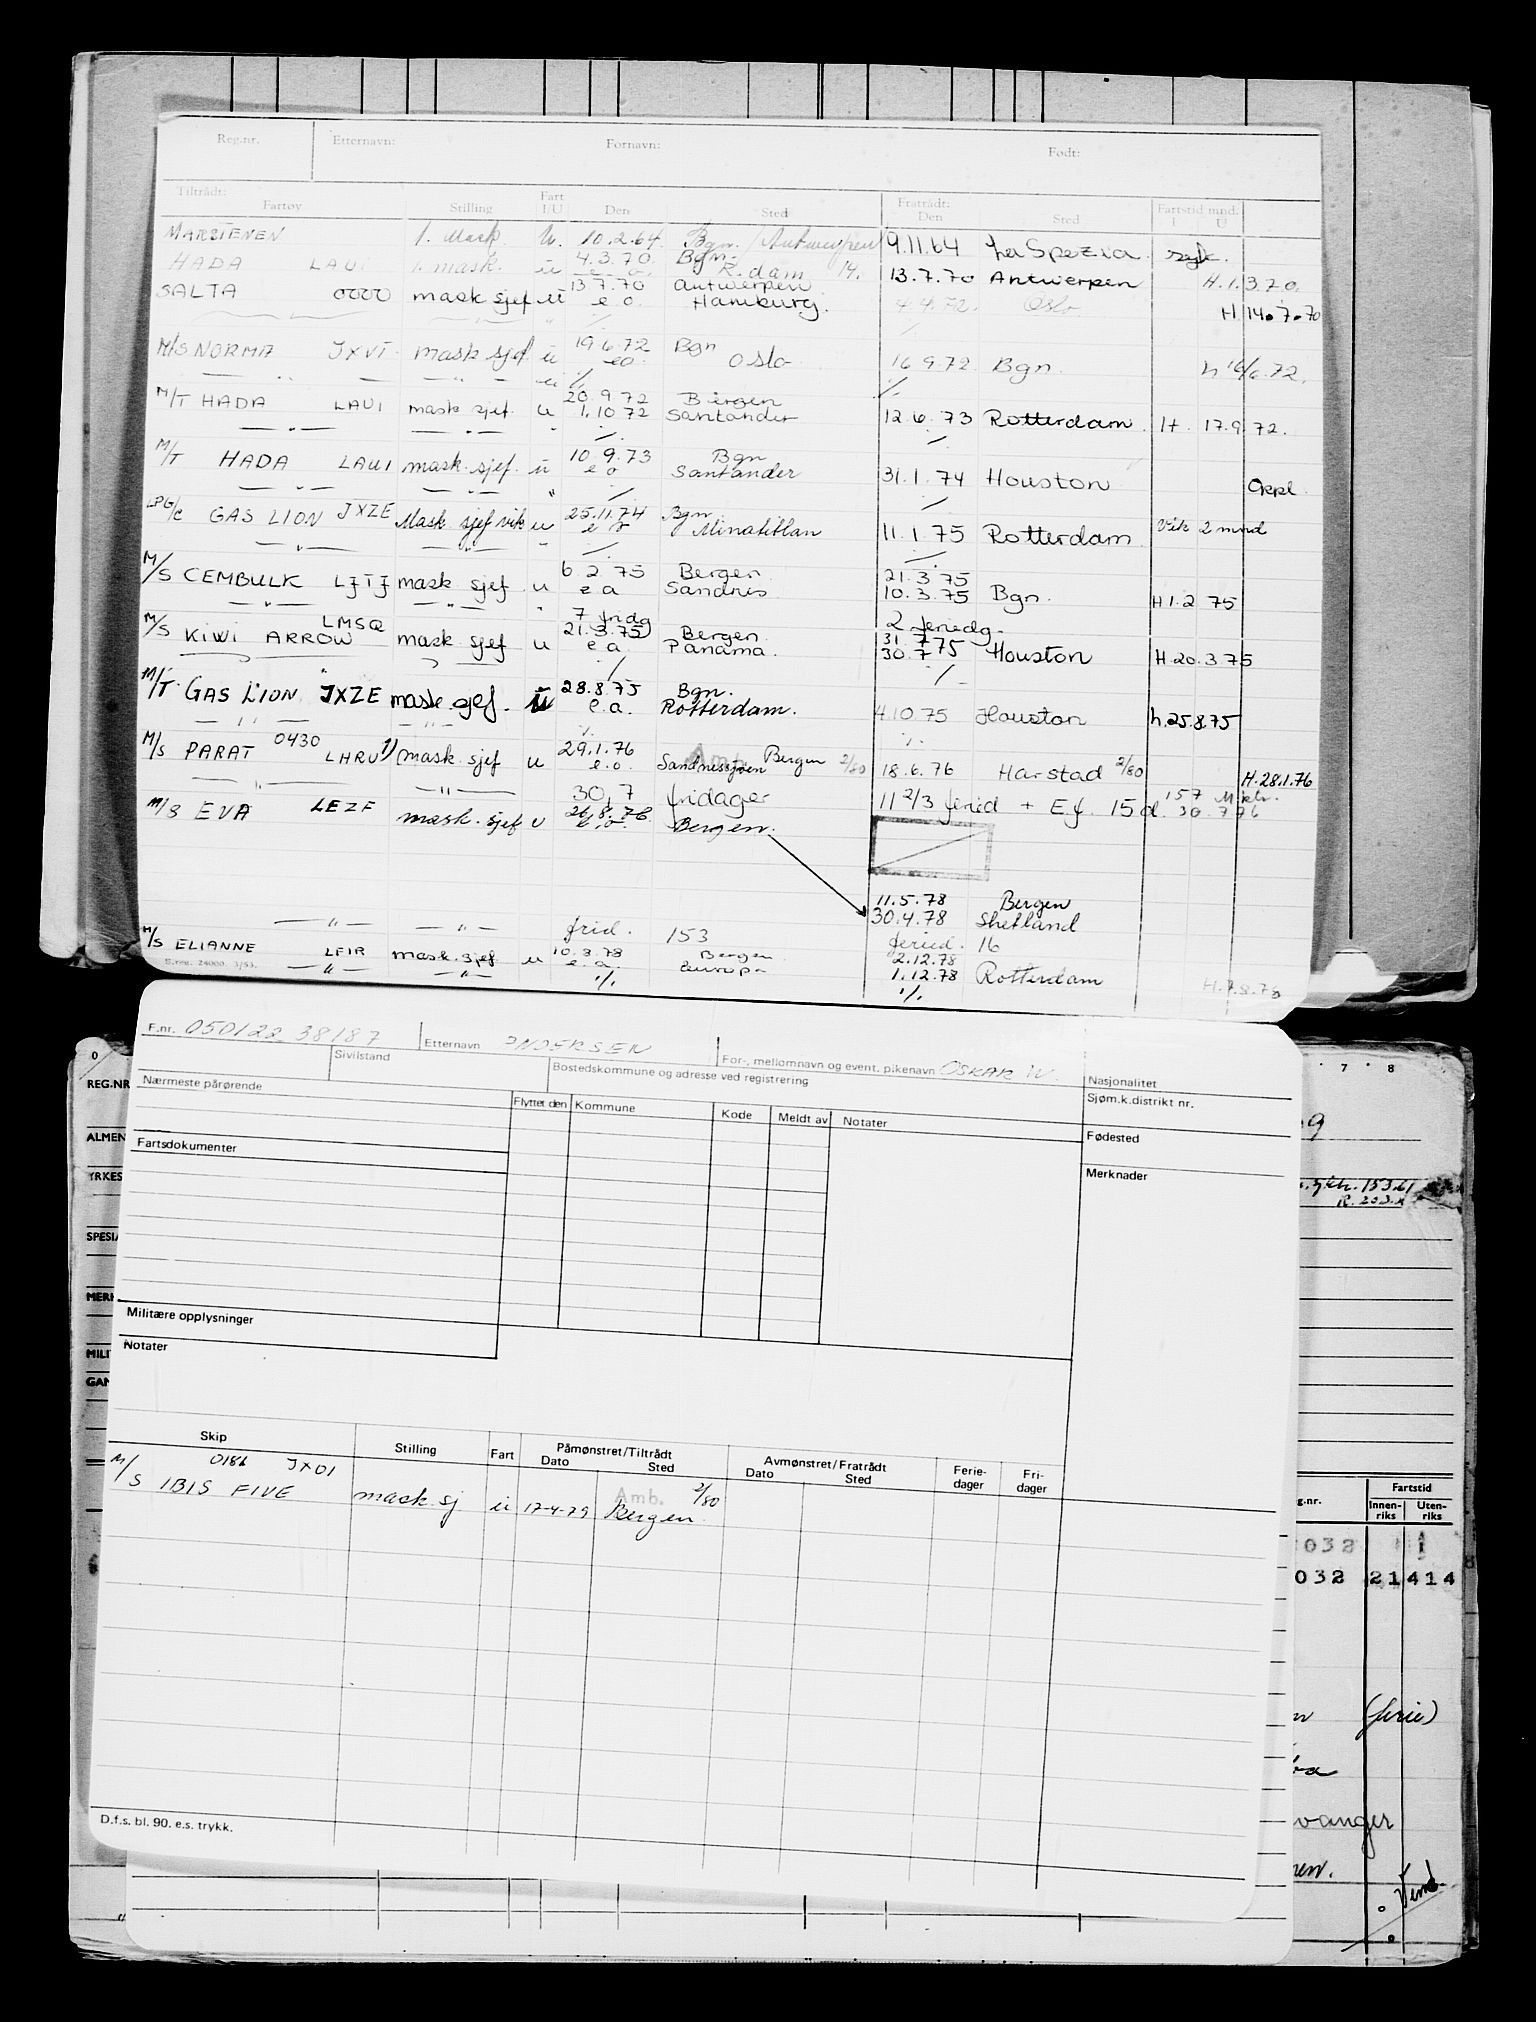 Reg.nr. Etternavn: Fornavn: Født:
Tiltrådt: Fratrådt:
Fartøy Stilling Fart I/U Den Sted Den Sted Fartstid mnd. I U
MARSTENEN 1. Mask. U. 10.2.64. Bgn. / Antwerpen 9.11.64 La Spezia syk.
HADA LAUI 1. mask. u 4.3.70. Bgn.
e. o. R.dam 14. 13.7.70 Antwerpen H.1.3.70.
SALTA 0000 mask sjef u 13.7.70 Antwerpen
e.o. Hamburg. 4.4.72. Oslo H 14.7.70
M/S NORMA JXVT mask sjef u 19.6.72 Bgn
eo. Oslo 16 9.72 Bgn. h 16/6.72.
M/T HADA LAUI mask sjef. u 20.9.72 Bergen
1.10 72 Santander 12.6.73 Rotterdam. H. 17.9.72.
M/T HADA LAUI mask.sjef. u 10.9.73 Bgn
e o Santander 31.1.74 Houston Oppl.
LPG/c GAS LION JXZE Mask sjef vik u 25.11.74 Bgn.
e o Minatitlan 11.1.75 Rotterdam Vik 2 mnd
M/S CEMBULK LJTJ mask. sjef. u 6.2.75 Bergen 21.3.75
e a Sandnes 10.3.75 Bgn. H 1.2 75
7 fridg 2 feriedg.
M/S KIWI ARROW LMSQ mask. sjef u 21.3.75 Bergen 31.7.75
e a. Panama. 30.7 Houston H.20.3.75
M/T. GAS LION JXZE mask sjef. u 28.8.75 Bgn.
e.a. Rotterdam. 4.10.75 Houston h.25.8.75
M/S PARAT 0430 LHRU 1) mask.sjef u 29.1.76 Amb. Bergen 2/80
e.o. Sandnessjøen 18.6.76 Harstad 2/80 H.28.1.76
30,7 fridager 11 2/3 feried + Ef. 15 d. 157
M/S EVA LEZE mask.sjef u 26.8.76 Bergen. 30.7.76
11.5.78 Bergen
30.4.78 Shetland
frid. 153 feried. 16
M/S ELIANNE LFIR mask.sjef u 10.8.78 Bergen 2.12.78
e.a. Europa 1.12.78 Rotterdam H.7.8.78
S.reg. 24000. 3/53.
F.nr. 050122 38187 Etternavn ANDERSEN For-, mellomnavn og event. pikenavn OSKAR W.
Sivilstand Bostedskommune og adresse ved registrering Nasjonalitet
Nærmeste pårørende Flyttet den Kommune Kode Meldt av Notater Sjøm.k.distrikt nr.
Fartsdokumenter Fødested
Merknader
Militære opplysninger
Notater
Skip Stilling Fart Påmønstret/Tiltrådt Avmønstret/Fratrådt Ferie-dager Fri-dager
Dato Sted Dato Sted
M/S IBIS FIVE 0186 JXOI mask.sj u 17-4-79 Amb. 2/80
Bergen.
D.f.s. bl. 90. e.s. trykk.
0
REG.NR
ALMEN
YRKES
SPESIA
MERK
MILI
GAN
7 8
R. 203.
g.nr. Fartstid
Innen-riks Uten-riks
032 1
032 21 414
(ferie)
vanger
Vend.